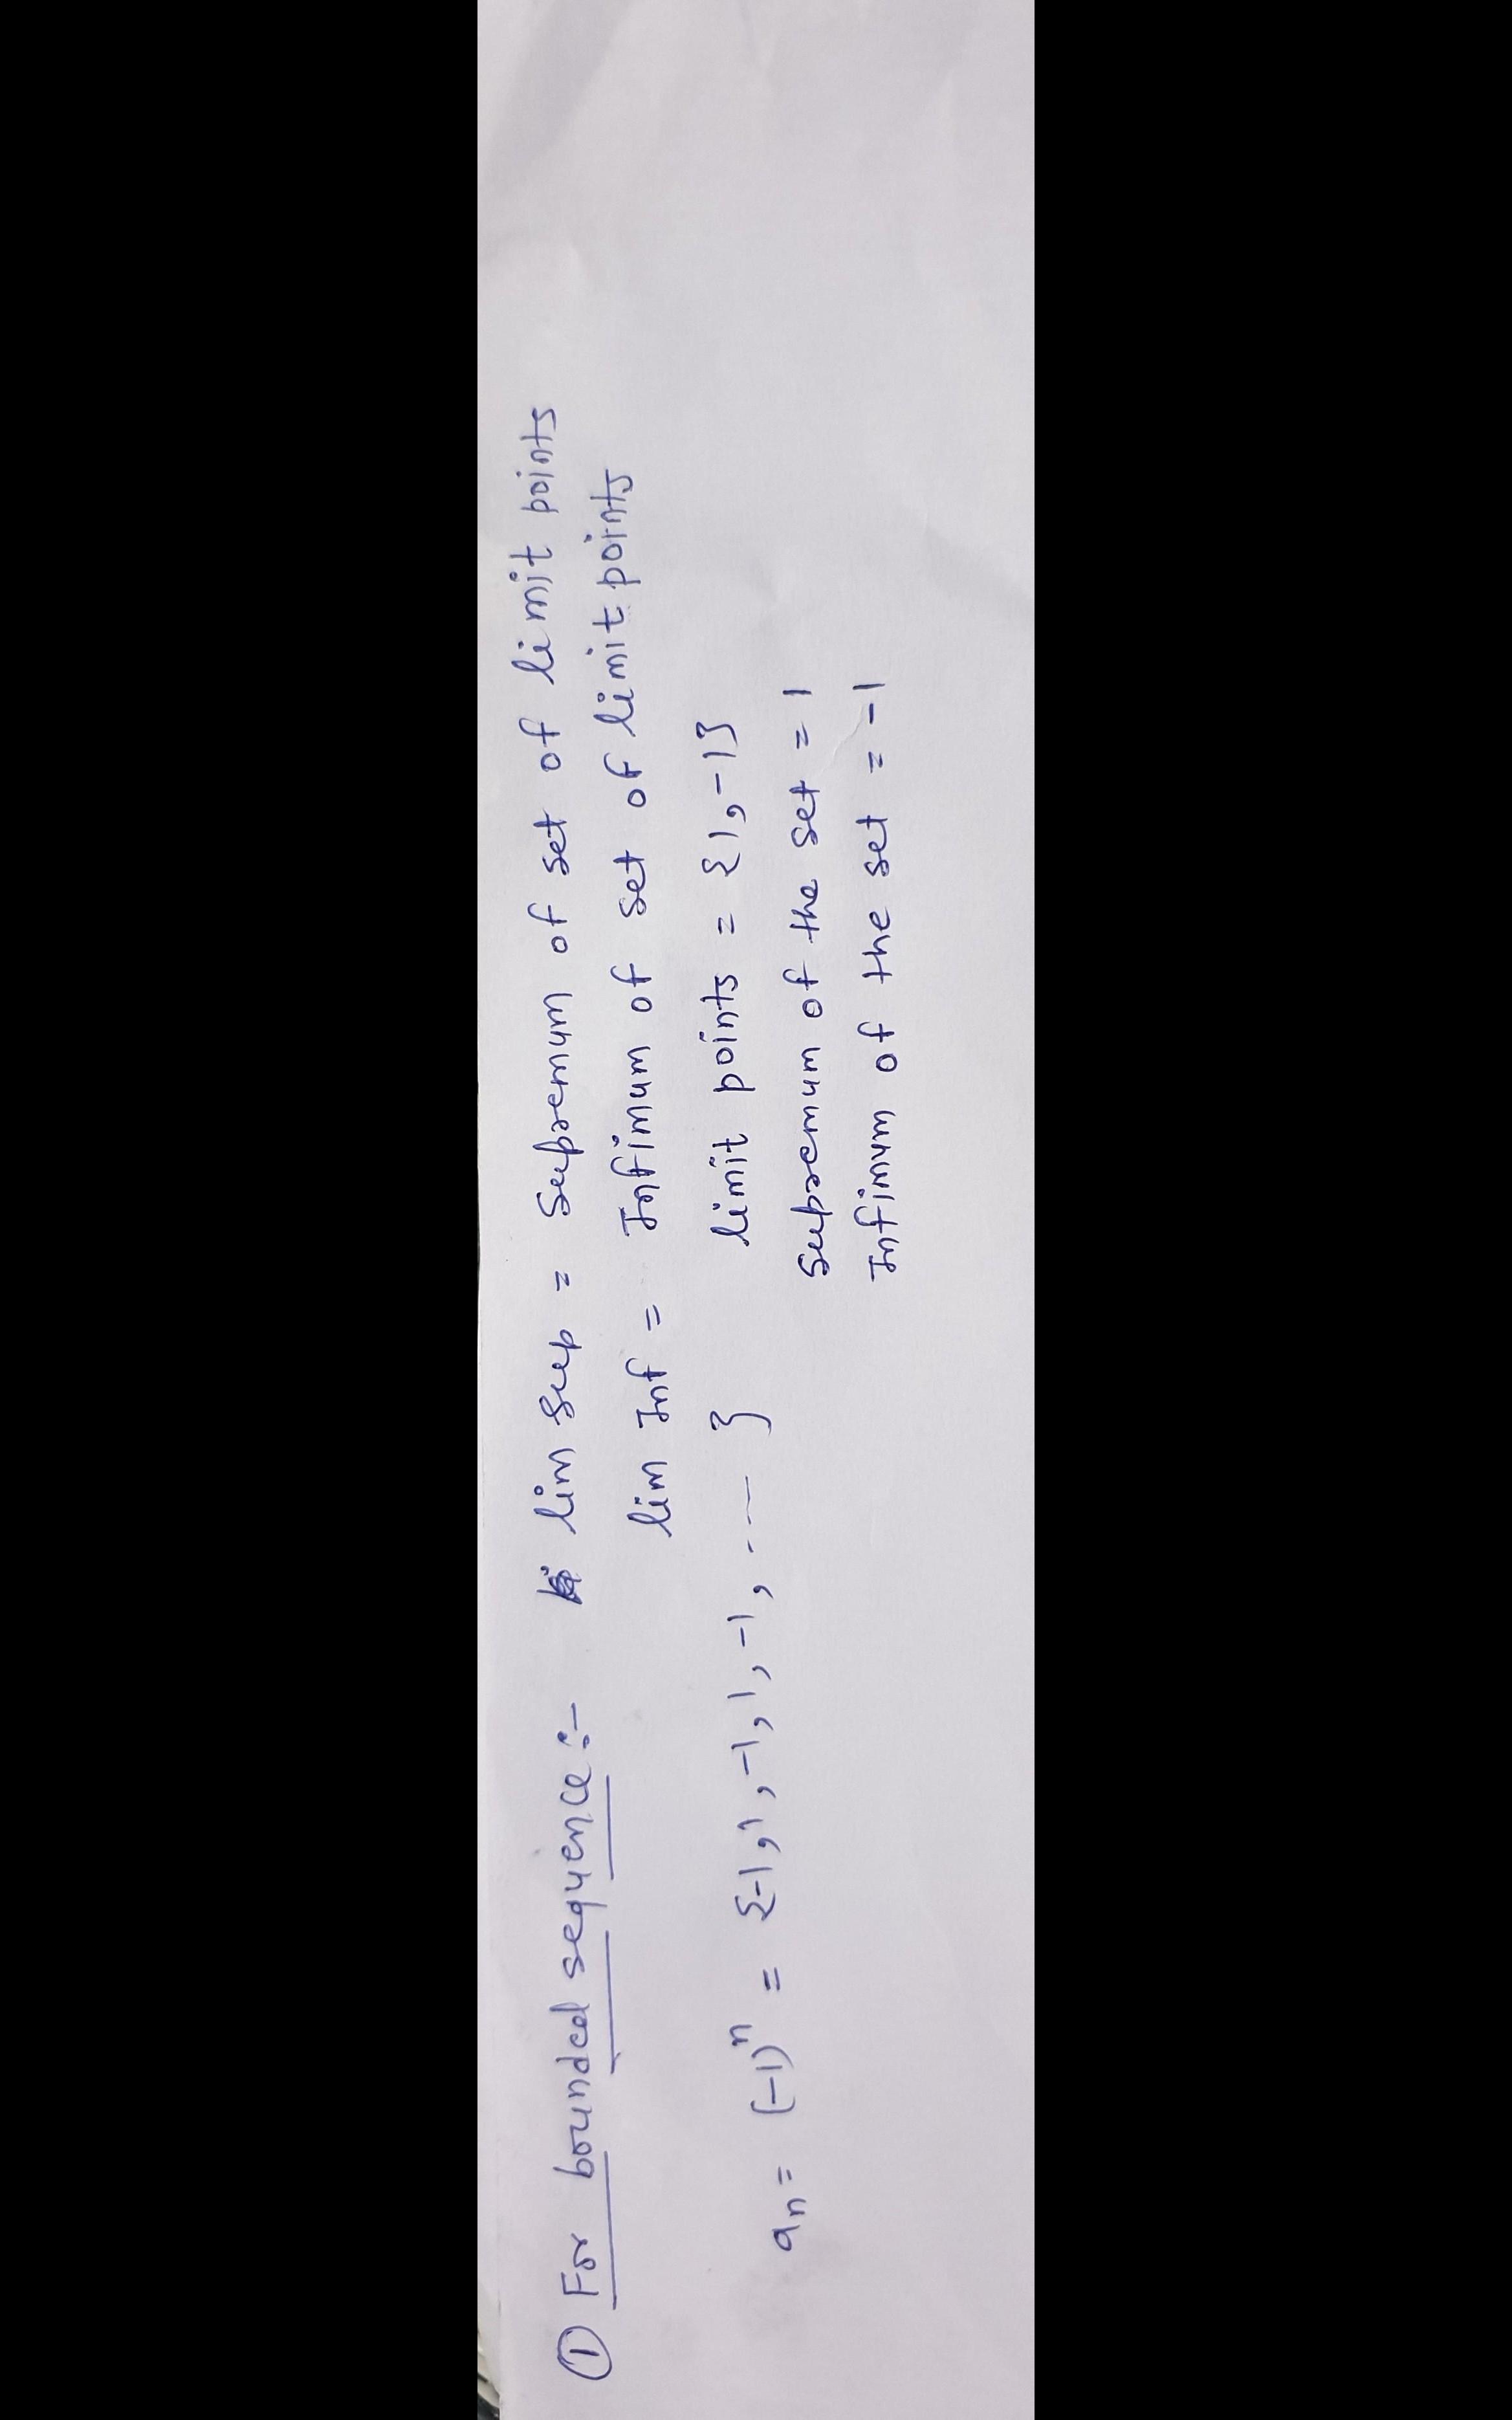 ① For bounded sequence:- lim sup = Supremum of set of limit points
lim Inf = Infimum of set of limit points
an = (-1)ⁿ = {-1,1,-1,1,-1,....} limit points = {1,-1}
Supremum of the set = 1
Infimum of the set = -1